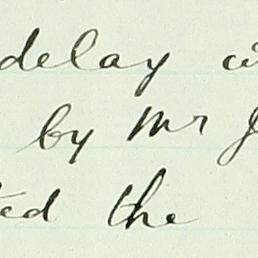 delay
by Mr
the